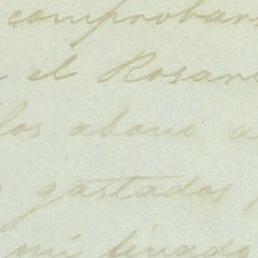 comprobar
el Rosari
los abono a
gastados
mi finado